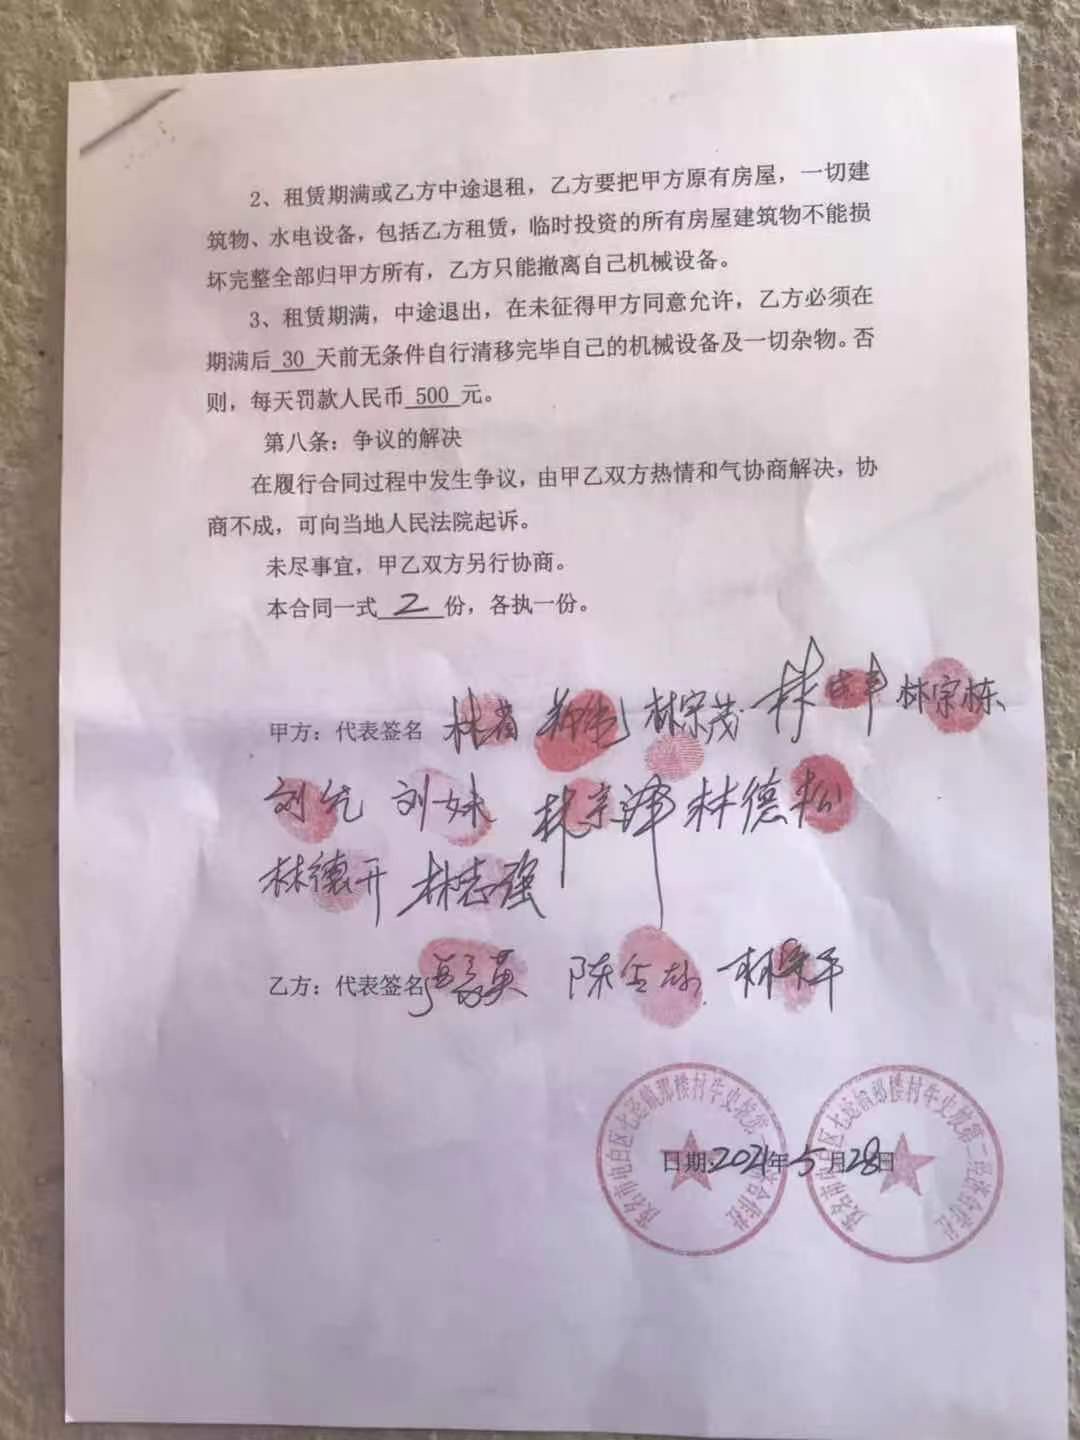 2、租赁期满或乙方中途退租，乙方要把甲方原有房屋，一切建
筑物、水电设备，包括乙方租赁，临时投资的所有房屋建筑物不能损
坏完整全部归甲方所有，乙方只能撤离自己机械设备。
3、租赁期满，中途退出，在未征得甲方同意允许，乙方必须在
期满后 30 天前无条件自行清移完毕自己的机械设备及一切杂物。否
则，每天罚款人民币 500 元。
第八条：争议的解决
在履行合同过程中发生争议，由甲乙双方热情和气协商解决，协
商不成，可向当地人民法院起诉。
未尽事宜，甲乙双方另行协商。
本合同一式 2 份，各执一份。
甲方：代表签名 林 林宗茂 林 林宗栋
刘 刘妹 林宗泽 林德松
林德开 林志强
乙方：代表签名 英 陈 林 平
日期：2021年5月28日
茂名市电白区七迳镇那楼村牛史坡第 合作社
茂名市电白区七迳镇那楼村牛史坡第二经济合作社